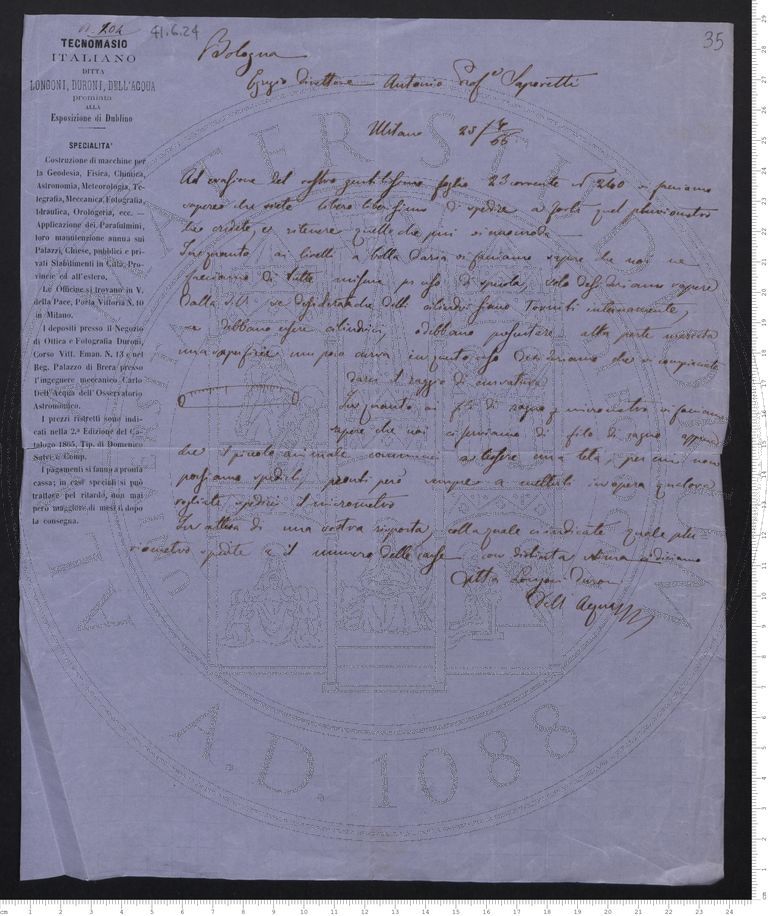 N. 202
41.6.24
35
TECNOMASIO
ITALIANO
DITTA
LONGONI, DURONI, DELL'ACQUA
premiata
ALLA
Esposizione di Dublino
SPECIALITA'
Costruzione di macchine per
la Geodesia, Fisica, Chimica,
Astronomia, Meteorologia, Te-
legrafia, Meccanica, Fotografia,
Idraulica, Orologeria, ecc. —
Applicazione dei Parafulmini,
loro manutenzione annua sui
Palazzi, Chiese, pubblici e pri-
vati Stabilimenti in Città, Pro-
vincie ed all'estero.
Le Officine si trovano in V.
della Pace, Porta Vittoria N. 10
in Milano.
I depositi presso il Negozio
di Ottica e Fotografia Duroni,
Corso Vitt. Eman. N. 13 e nel
Reg. Palazzo di Brera presso
l'ingegnere meccanico Carlo
Dell'Acqua dell'Osservatorio
Astronomico.
I prezzi ristretti sono indi-
cati nella 2.ª Edizione del Ca-
talogo 1865, Tip. di Domenico
Salvi e Comp.
I pagamenti si fanno a pronta
cassa; in casi speciali si può
trattare pel ritardo, non mai
però maggiore di mesi 6 dopo
la consegna.
Bologna
Egregio Direttore Antonio Prof. Saporetti
Milano 25/ /66
Ad evasione del vostro gentilissimo foglio 23 corrente N. 240 vi facciamo
sapere che siete libero liberissimo di spedire a Forlì quel pluviometro
che credete, e ritenere quello che più vi accomoda
In quanto ai livelli a bolla d'aria vi facciamo sapere che noi ne
facciamo di tutte misure, solo desideriamo sapere
dalla se desiderate che delli cilindri siano torniti internamente,
se debbano essere cilindrici, o debbano presentare alla parte
una superficie un poco curva in questo caso desideriamo che vi compiaciate
darci il raggio di curvatura
In quanto ai fili di ragno pel micrometro vi facciamo
sapere che noi ci serviamo di filo di ragno appena
che il piccolo animale comincia a tessere una tela, per cui non
possiamo spedirli, pronti però sempre a metterli in opera qualora
vogliate spedirci il micrometro
In attesa di una vostra risposta, colla quale c'indicate quale plu-
viometro spedite e il numero delle casse con distinta stima ci diciamo
Ditta Longoni Duroni
Dell'Acqua
A.D. 1088